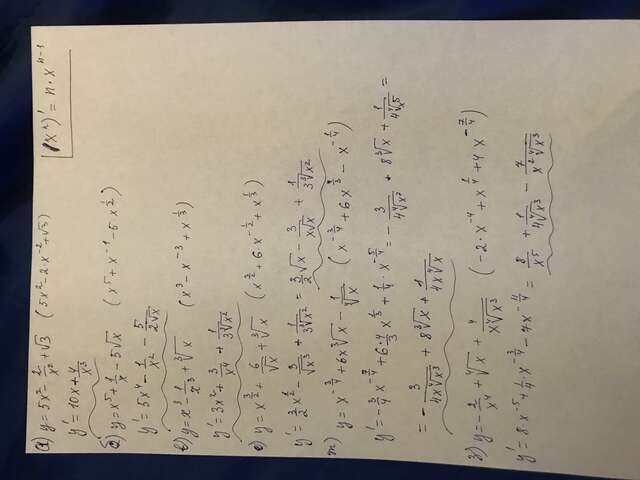 (x^n)' = n·x^{n-1}
а) y = 5x² - 2/x² + √3 (5x² - 2·x^{-2} + √3)
y' = 10x + 4/x³
б) y = x⁵ + 1/x - 5√x (x⁵ + x^{-1} - 5·x^{1/2})
y' = 5x⁴ - 1/x² - 5/(2√x)
в) y = x³ - 1/x³ + ∛x (x³ - x^{-3} + x^{1/3})
y' = 3x² + 3/x⁴ + 1/(3∛x²)
е) y = x^{3/2} + 6/√x + ∛x (x^{3/2} + 6·x^{-1/2} + x^{1/3})
y' = 3/2 x^{1/2} - 3/√x³ + 1/(3∛x²) = 3/2 √x - 3/(x√x) + 1/(3∛x²)
ж) y = x^{-3/4} + 6x∛x - 1/∜x (x^{-3/4} + 6x^{4/3} - x^{-1/4})
y' = -3/4 x^{-7/4} + 6·4/3 x^{1/3} + 1/4·x^{-5/4} = -3/(4∜x⁷) + 8∛x + 1/(4∜x⁵) =
= -3/(4x∜x³) + 8∛x + 1/(4x∜x)
з) y = -2/x⁴ + ∜x + 4/(x∜x³) (-2·x^{-4} + x^{1/4} + 4x^{-7/4})
y' = 8x^{-5} + 1/4 x^{-3/4} - 7x^{-11/4} = 8/x⁵ + 1/(4∜x³) - 7/(x²∜x³)